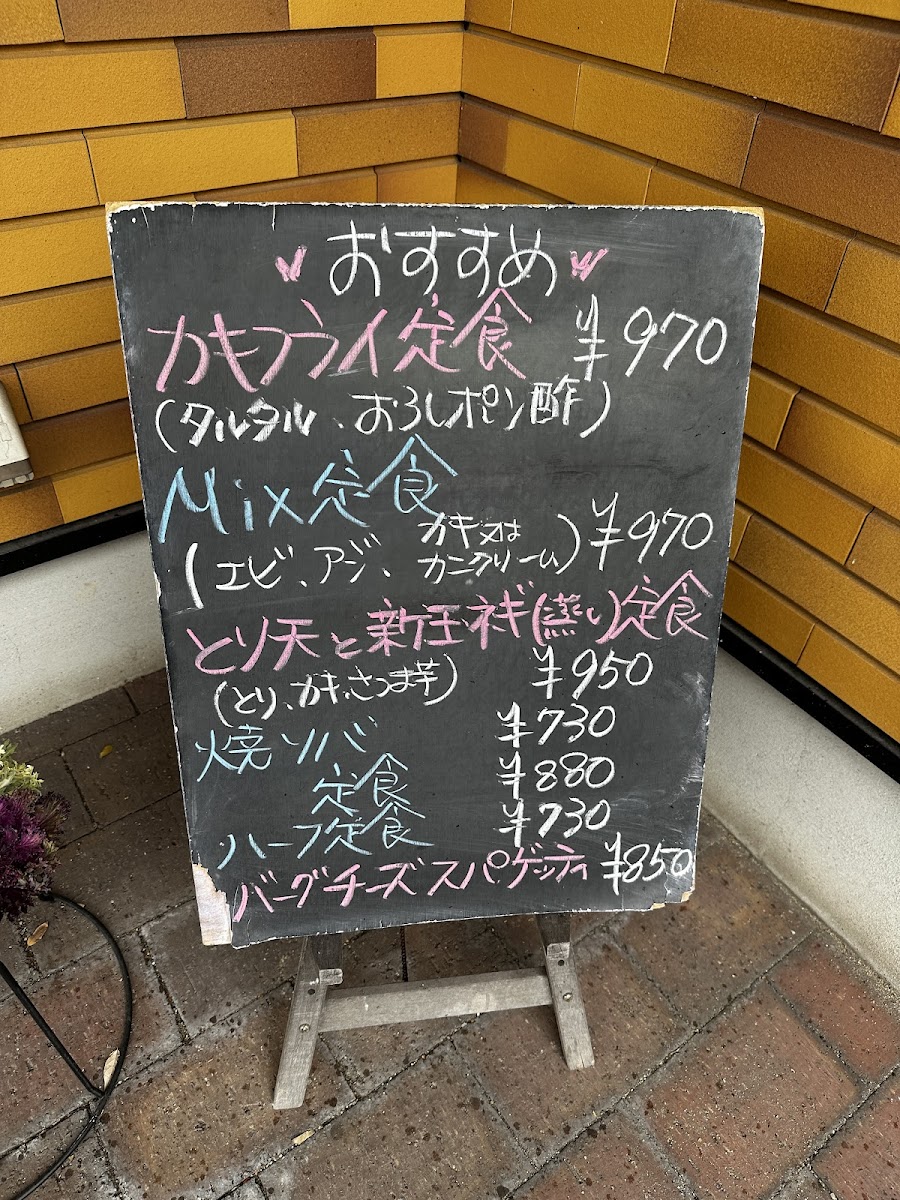 おすすめ
カキフライ定食 ¥970
(タルタル、おろしポン酢)
Mix定食
(エビ、アジ、カキ又はカニクリーム) ¥970
とり天と新玉ネギ(蒸し)定食
(とり、カキ、さつま芋) ¥950
焼ソバ ¥730
定食 ¥880
ハーフ定食 ¥730
バーグチーズスパゲッティ ¥850